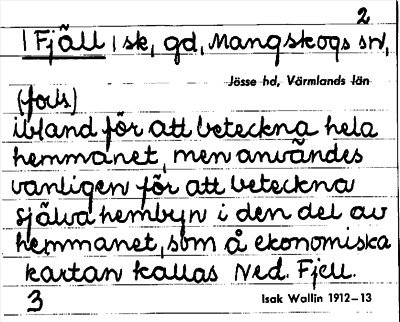 2
Fjäll, sk, gd, Mangskogs sn,
Jösse hd, Värmlands län
(forts)
ibland för att beteckna hela
hemmanet, men användes
vanligen för att beteckna
själva hembyn i den del av
hemmanet, som å ekonomiska
kartan kallas Ned. Fjell.
3
Isak Wallin 1912–13